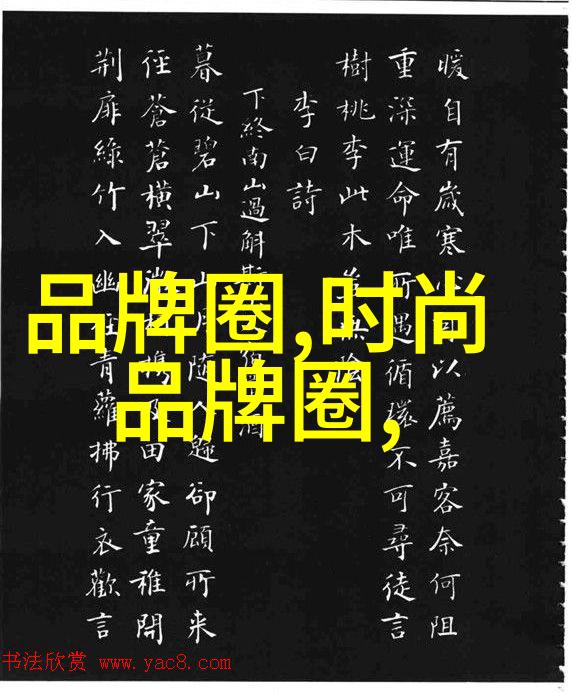 暖自有歲寒以薦嘉客奈何阻
重深運命唯所遇循環不可尋徒言
樹桃李此木
李白詩
下終南山過斛斯
暮從碧山下月隨人歸卻顧所来
徑蒼蒼橫翠攜及田家童稚開
荆扉綠竹入幽徑青蘿拂行衣歡言
品牌圈,时尚
品牌圈,
书法欣赏 www.yac8.com